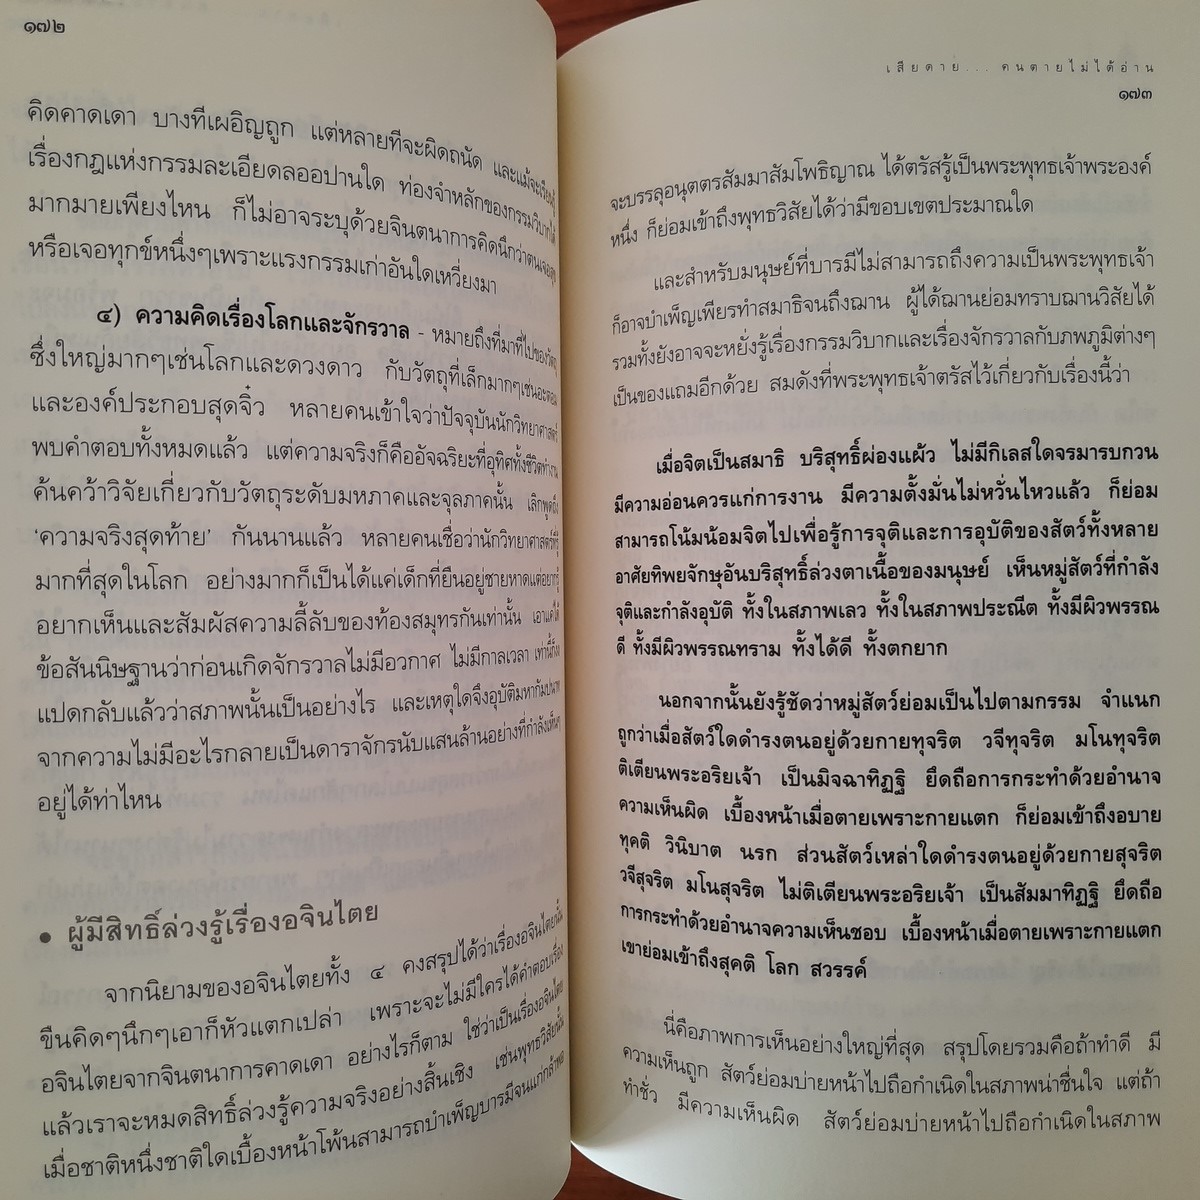 ๑๗๒
คิดคาดเดา บางทีเผอิญถูก แต่หลายทีจะผิดถนัด และแม้จะเรียนรู้
เรื่องกฎแห่งกรรมละเอียดลออปานใด ท่องจำหลักของกรรมวิบากได้
มากมายเพียงไหน ก็ไม่อาจระบุด้วยจินตนาการคิดนึกว่าตนเจอสุข
หรือเจอทุกข์หนึ่งๆเพราะแรงกรรมเก่าอันใดเหวี่ยงมา
๔) ความคิดเรื่องโลกและจักรวาล - หมายถึงที่มาที่ไปของวัตถุ
ซึ่งใหญ่มากๆเช่นโลกและดวงดาว กับวัตถุที่เล็กมากๆเช่นอะตอม
และองค์ประกอบสุดจิ๋ว หลายคนเข้าใจว่าปัจจุบันนักวิทยาศาสตร์
พบคำตอบทั้งหมดแล้ว แต่ความจริงก็คืออัจฉริยะที่อุทิศทั้งชีวิตทำงาน
ค้นคว้าวิจัยเกี่ยวกับวัตถุระดับมหภาคและจุลภาคนั้น เลิกพูดถึง
‘ความจริงสุดท้าย’ กันนานแล้ว หลายคนเชื่อว่านักวิทยาศาสตร์ที่รู้
มากที่สุดในโลก อย่างมากก็เป็นได้แค่เด็กที่ยืนอยู่ชายหาดแต่อยากรู้
อยากเห็นและสัมผัสความลี้ลับของท้องสมุทรกันเท่านั้น เอาแค่ได้
ข้อสันนิษฐานว่าก่อนเกิดจักรวาลไม่มีอวกาศ ไม่มีกาลเวลา เท่านี้ก็งง
แปดกลับแล้วว่าสภาพนั้นเป็นอย่างไร และเหตุใดจึงอุบัติมหากัมปนาท
จากความไม่มีอะไรกลายเป็นดาราจักรนับแสนล้านอย่างที่กำลังเห็นๆ
อยู่ได้ท่าไหน
• ผู้มีสิทธิ์ล่วงรู้เรื่องอจินไตย
จากนิยามของอจินไตยทั้ง ๔ คงสรุปได้ว่าเรื่องอจินไตยนั้น
ขืนคิดๆนึกๆเอาก็หัวแตกเปล่า เพราะจะไม่มีใครได้คำตอบเรื่อง
อจินไตยจากจินตนาการคาดเดา อย่างไรก็ตาม ใช่ว่าเป็นเรื่องอจินไตย
แล้วเราจะหมดสิทธิ์ล่วงรู้ความจริงอย่างสิ้นเชิง เช่นพุทธวิสัยนั้น
เมื่อชาติหนึ่งชาติใดเบื้องหน้าโพ้นสามารถบำเพ็ญบารมีจนแก่กล้าพอ
เสียดาย... คนตายไม่ได้อ่าน
๑๗๓
จะบรรลุอนุตตรสัมมาสัมโพธิญาณ ได้ตรัสรู้เป็นพระพุทธเจ้าพระองค์
หนึ่ง ก็ย่อมเข้าถึงพุทธวิสัยได้ว่ามีขอบเขตประมาณใด
และสำหรับมนุษย์ที่บารมีไม่สามารถถึงความเป็นพระพุทธเจ้า
ก็อาจบำเพ็ญเพียรทำสมาธิจนถึงฌาน ผู้ได้ฌานย่อมทราบฌานวิสัยได้
รวมทั้งยังอาจจะหยั่งรู้เรื่องกรรมวิบากและเรื่องจักรวาลกับภพภูมิต่างๆ
เป็นของแถมอีกด้วย สมดังที่พระพุทธเจ้าตรัสไว้เกี่ยวกับเรื่องนี้ว่า
เมื่อจิตเป็นสมาธิ บริสุทธิ์ผ่องแผ้ว ไม่มีกิเลสใดจรมารบกวน
มีความอ่อนควรแก่การงาน มีความตั้งมั่นไม่หวั่นไหวแล้ว ก็ย่อม
สามารถโน้มน้อมจิตไปเพื่อรู้การจุติและการอุบัติของสัตว์ทั้งหลาย
อาศัยทิพยจักษุอันบริสุทธิ์ล่วงตาเนื้อของมนุษย์ เห็นหมู่สัตว์ที่กำลัง
จุติและกำลังอุบัติ ทั้งในสภาพเลว ทั้งในสภาพประณีต ทั้งมีผิวพรรณ
ดี ทั้งมีผิวพรรณทราม ทั้งได้ดี ทั้งตกยาก
นอกจากนั้นยังรู้ชัดว่าหมู่สัตว์ย่อมเป็นไปตามกรรม จำแนก
ถูกว่าเมื่อสัตว์ใดดำรงตนอยู่ด้วยกายทุจริต วจีทุจริต มโนทุจริต
ติเตียนพระอริยเจ้า เป็นมิจฉาทิฏฐิ ยึดถือการกระทำด้วยอำนาจ
ความเห็นผิด เบื้องหน้าเมื่อตายเพราะกายแตก ก็ย่อมเข้าถึงอบาย
ทุคติ วินิบาต นรก ส่วนสัตว์เหล่าใดดำรงตนอยู่ด้วยกายสุจริต
วจีสุจริต มโนสุจริต ไม่ติเตียนพระอริยเจ้า เป็นสัมมาทิฏฐิ ยึดถือ
การกระทำด้วยอำนาจความเห็นชอบ เบื้องหน้าเมื่อตายเพราะกายแตก
เขาย่อมเข้าถึงสุคติ โลก สวรรค์
นี่คือภาพการเห็นอย่างใหญ่ที่สุด สรุปโดยรวมคือถ้าทำดี มี
ความเห็นถูก สัตว์ย่อมบ่ายหน้าไปถือกำเนิดในสภาพน่าชื่นใจ แต่ถ้า
ทำชั่ว มีความเห็นผิด สัตว์ย่อมบ่ายหน้าไปถือกำเนิดในสภาพ